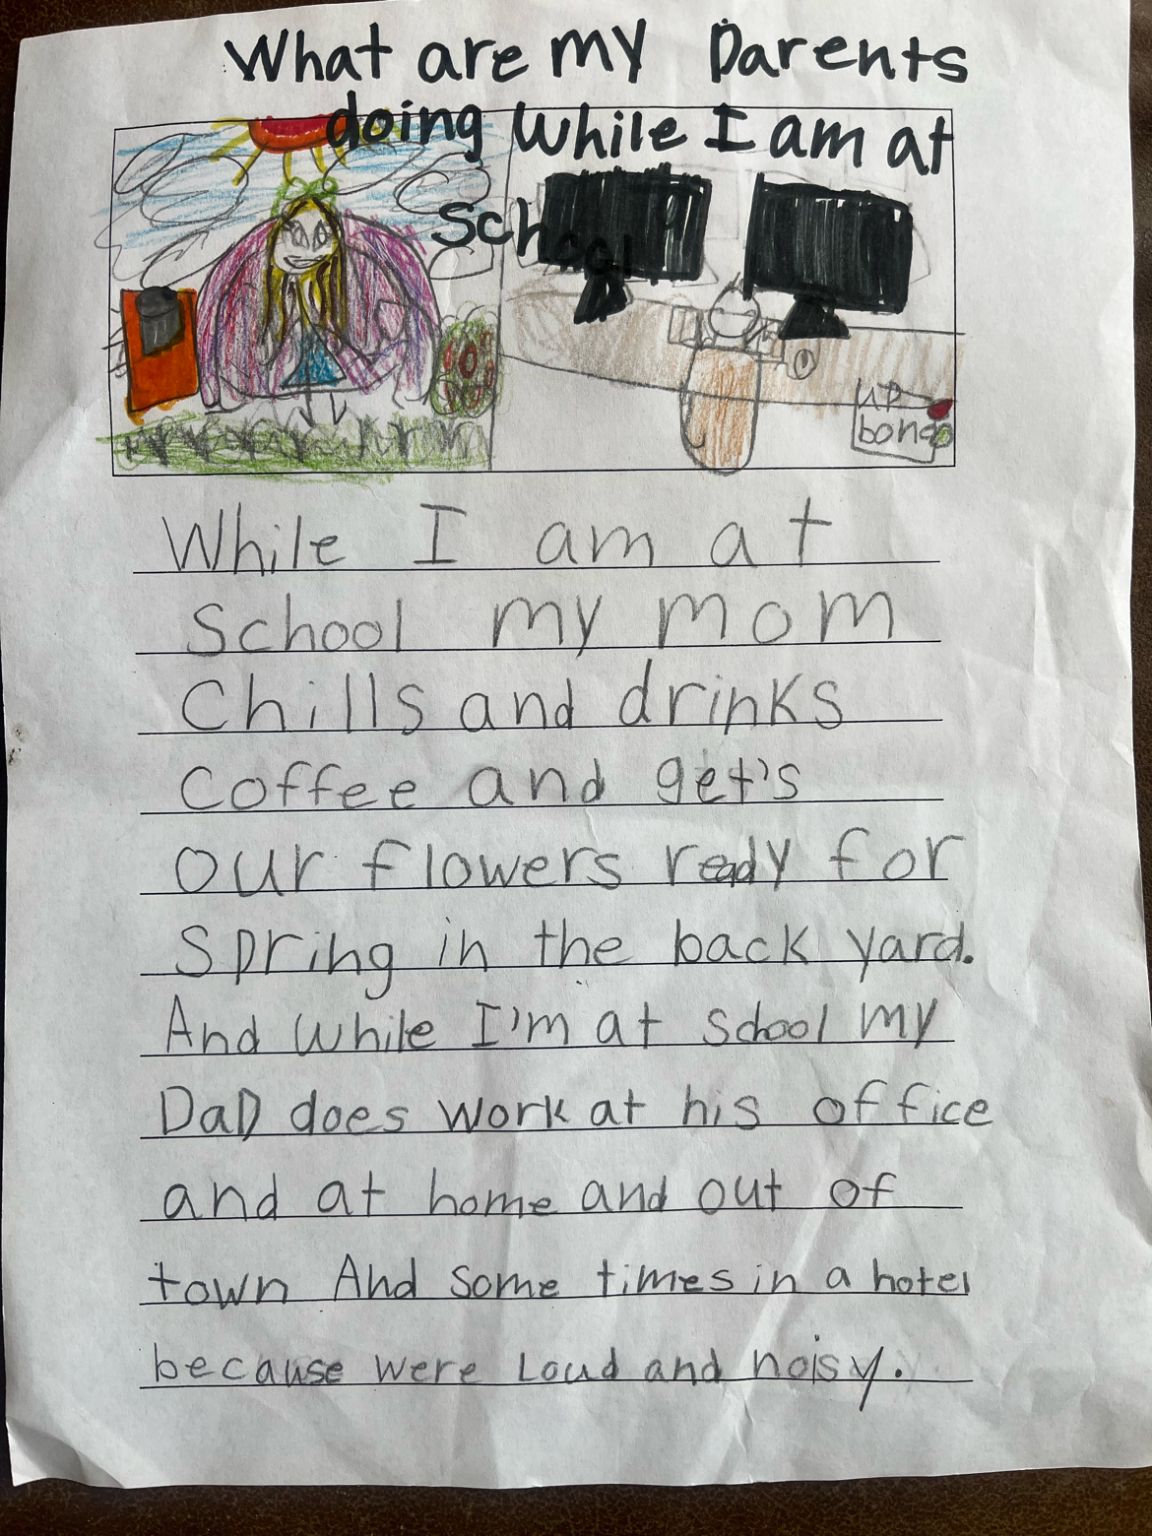 What are my Parents
doing While I am at
School
UP
bongo
While I am at
School my mom
Chills and drinks
Coffee and get's
our flowers ready for
Spring in the back yard.
And While I'm at School my
DaD does work at his office
and at home and out of
town And some times in a hotel
because were Loud and noisy.